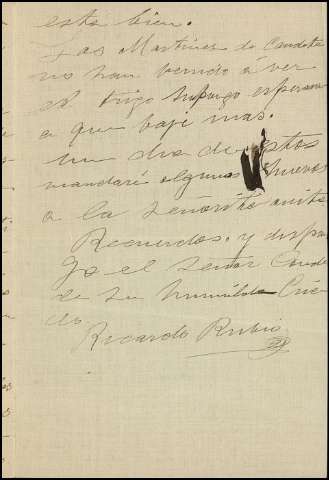 esta bien.
Los Martines de Caudete
no han venido á ver
el trigo supongo esperan
a que baje mas.
un dia de estos
mandaré algunos huevos
a la Señorita
Recuerdos. y dispon
ga el Señor Conde
de su humilde Cria
do
Ricardo Rubio